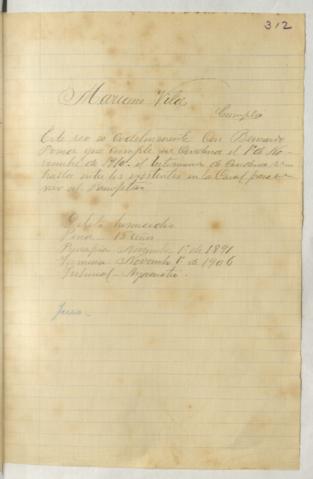 312
Mariano Vila
Cumplio
Este reo es Codelincuente Con Bernardo
que cumple su Condena el 1º de No-
viembre de 1910. el testimonio de Condena se
halla entre los espedientes en la Causal para
Delito homicidio
Pena 15 años
Principia Noviembre 1º de 1891
Termina Noviembre 1º de 1906
Tribunal Ayacucho